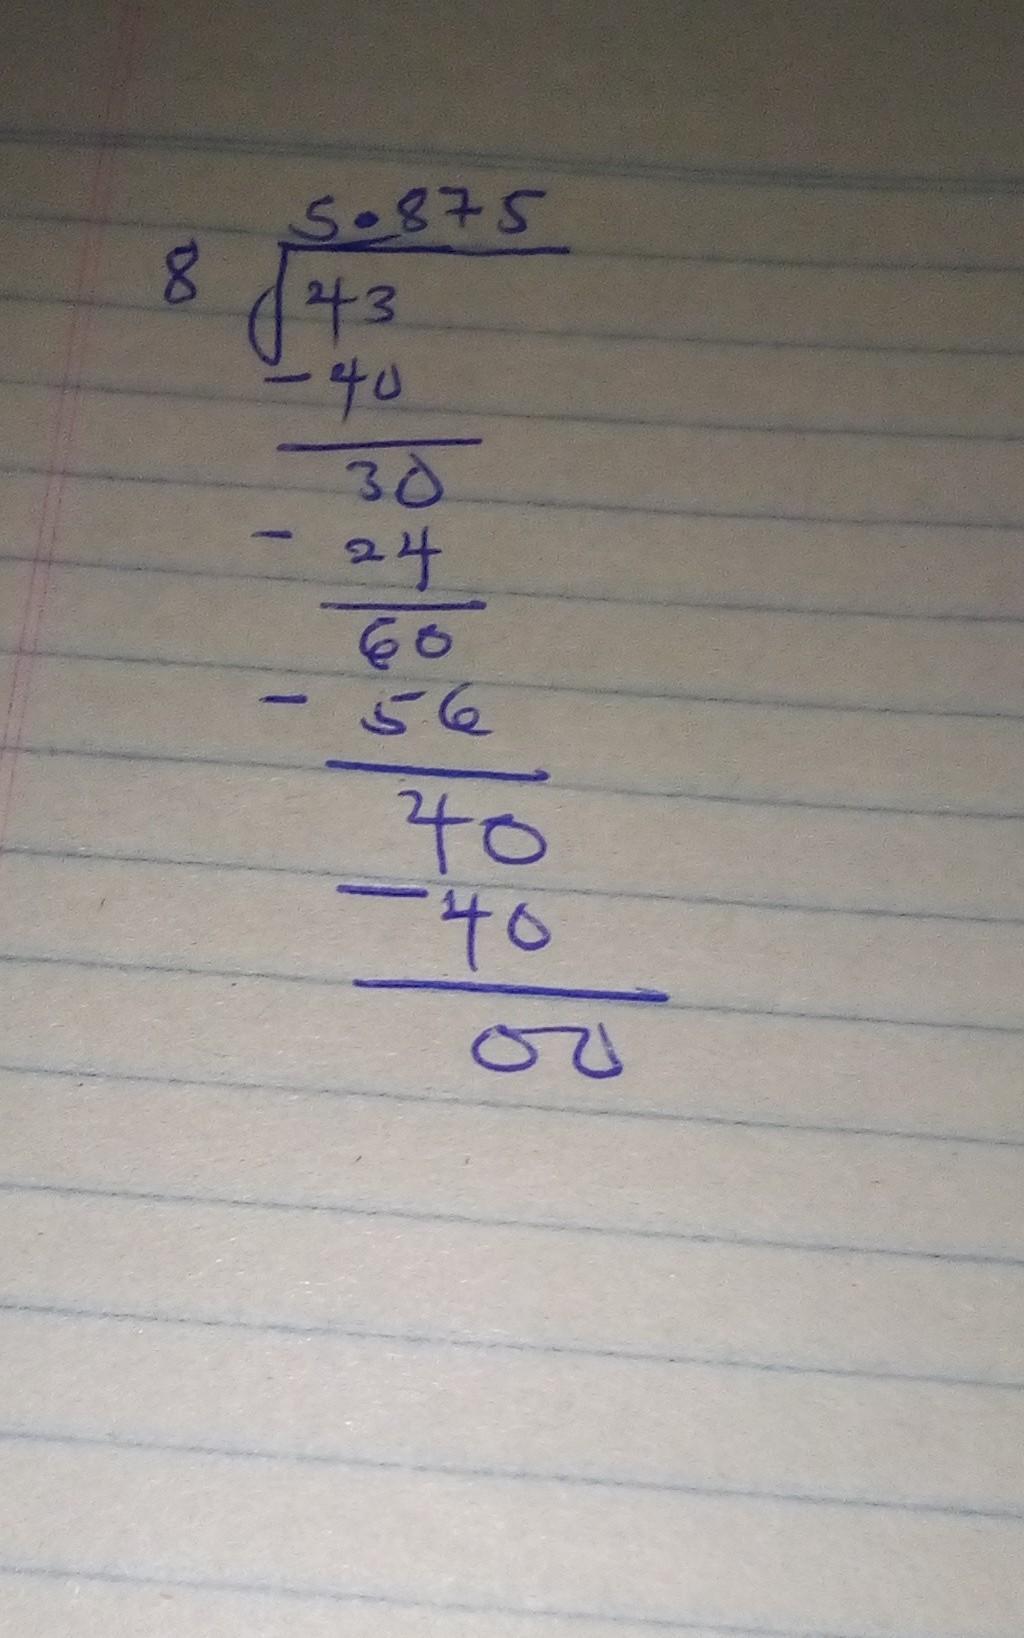 5.875
8 43
- 40
30
- 24
60
- 56
40
- 40
00